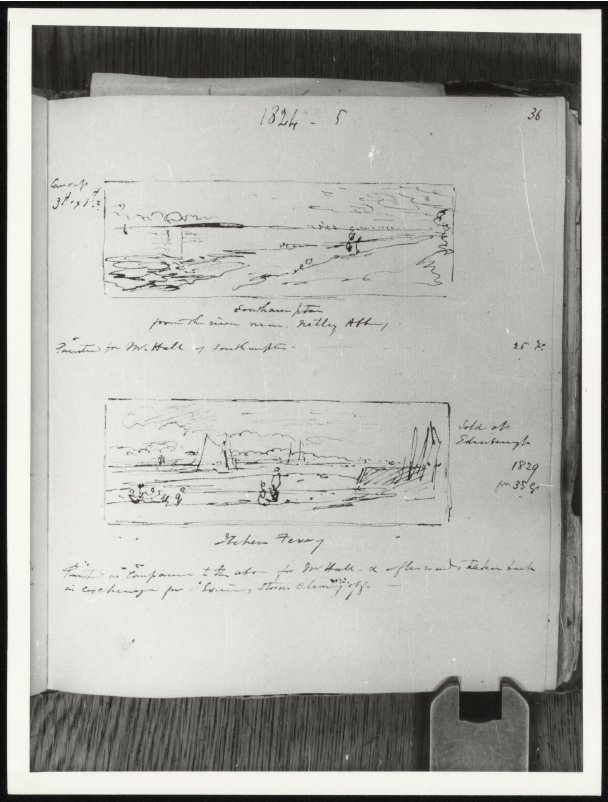 1824 - 5
36
Canvas
3ft x 1 ft 2
Southampton
from the river near Netley Abbey
Painted for Mr. Hall of Southampton
25
Sold at
Edinburgh
1829
for 35 gs
Itchen Ferry
Painted as Companion to the above for Mr Hall & afterwards taken back
in exchange for "Evening, Storm Clearing off